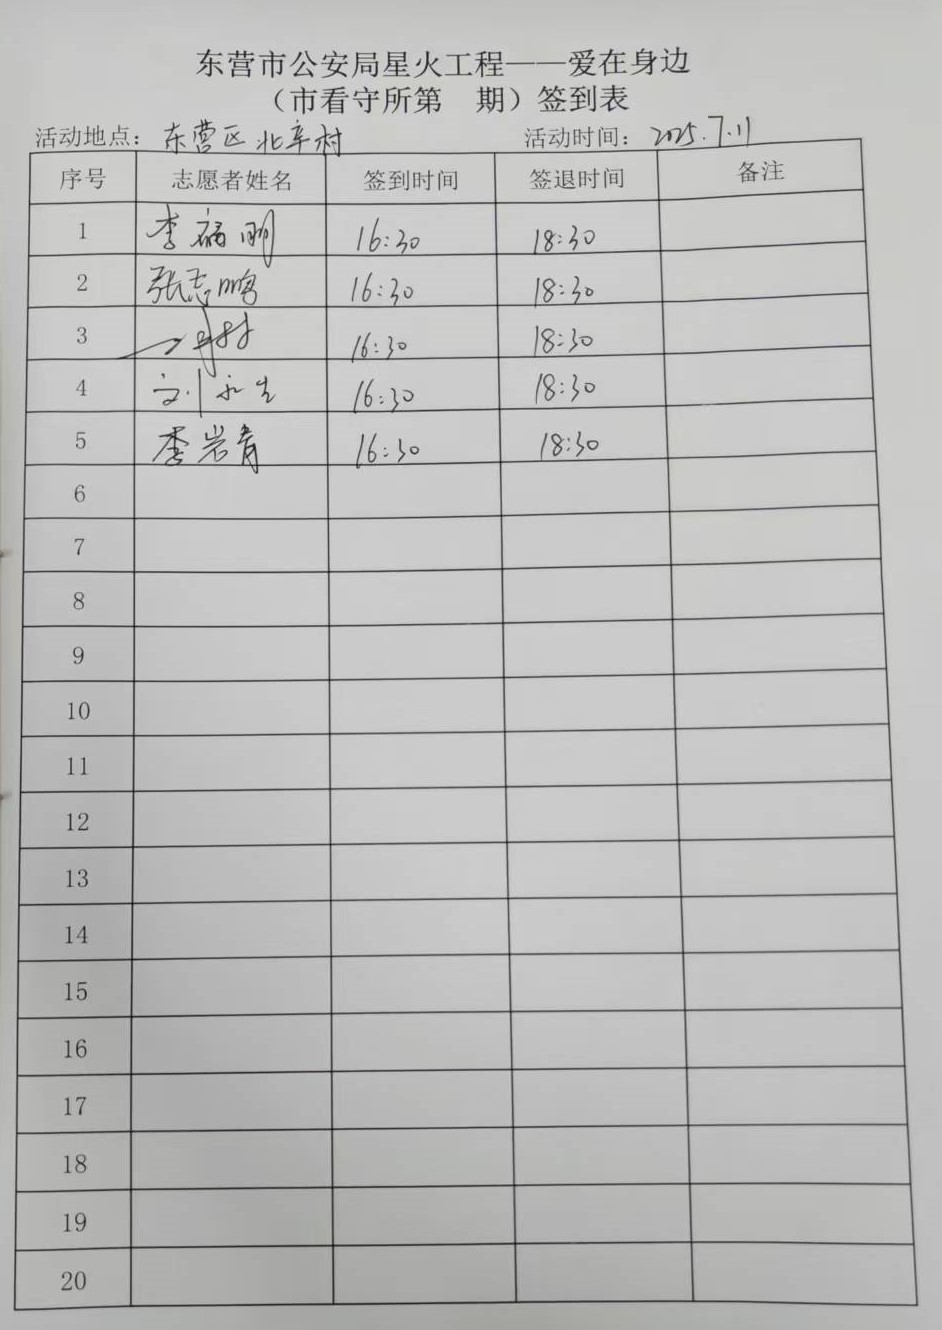 东营市公安局星火工程——爱在身边
（市看守所第 期）签到表
活动地点：东营区北辛村 活动时间：2025.7.11
序号 志愿者姓名 签到时间 签退时间 备注
1 李福明 16:30 18:30
2 张志鹏 16:30 18:30
3 16:30 18:30
4 刘永生 16:30 18:30
5 李岩青 16:30 18:30
6
7
8
9
10
11
12
13
14
15
16
17
18
19
20